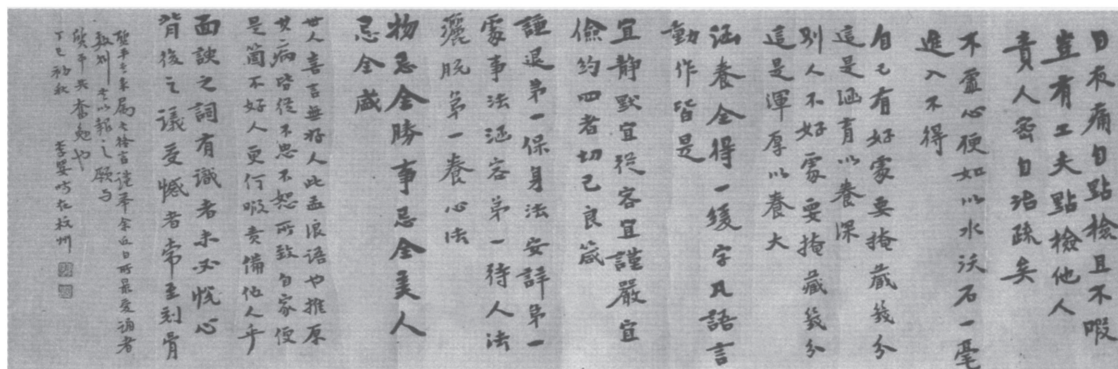 日夜痛自點檢且不暇
豈有工夫點檢他人
責人密自治疏矣
不虛心便如以水沃石一毫
進入不得
自己有好處要掩藏幾分
這是涵育以養深
別人不好處要掩藏幾分
這是渾厚以養大
涵養全得一緩字凡語言
動作皆是
宜靜默宜從容宜謹嚴宜
儉約四者切己良箴
謙退第一保身法安詳第一
處事法涵容第一待人法
灑脫第一養心法
物忌全勝事忌全美人
忌全盛
世人喜言無好人此孟浪語也推原
其病皆從不忠不恕所致自家便
是箇不好人更何暇責備他人乎
面諛之詞有識者未必悅心
背後之議受憾者常至刻骨
格言謹 余近日所最愛誦者
數則書以報之願與
共奮勉也
丁巳初秋 李嬰時在杭州